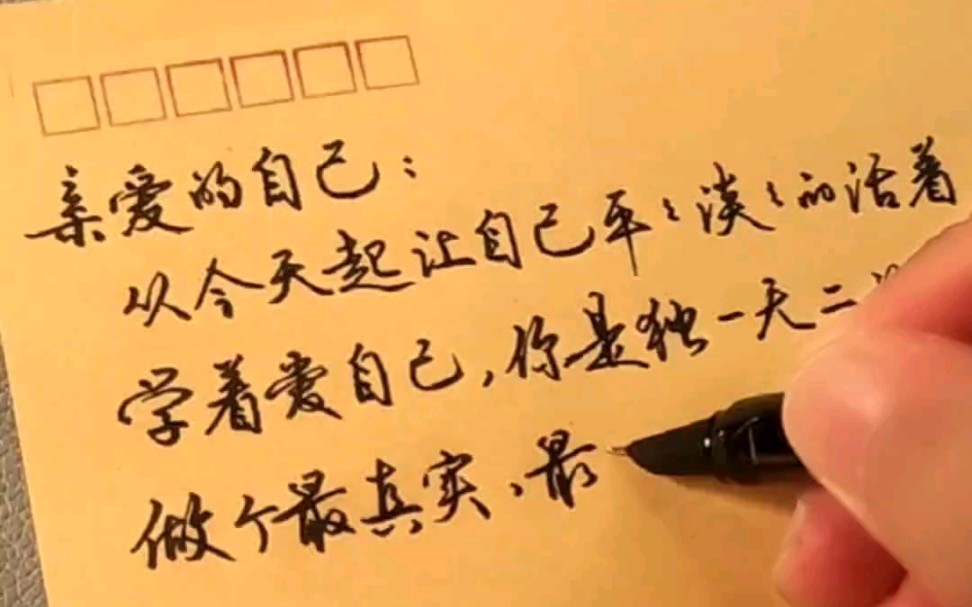 亲爱的自己：
从今天起让自己平々淡々的活着
学着爱自己，你是独一无二
做个最真实、最